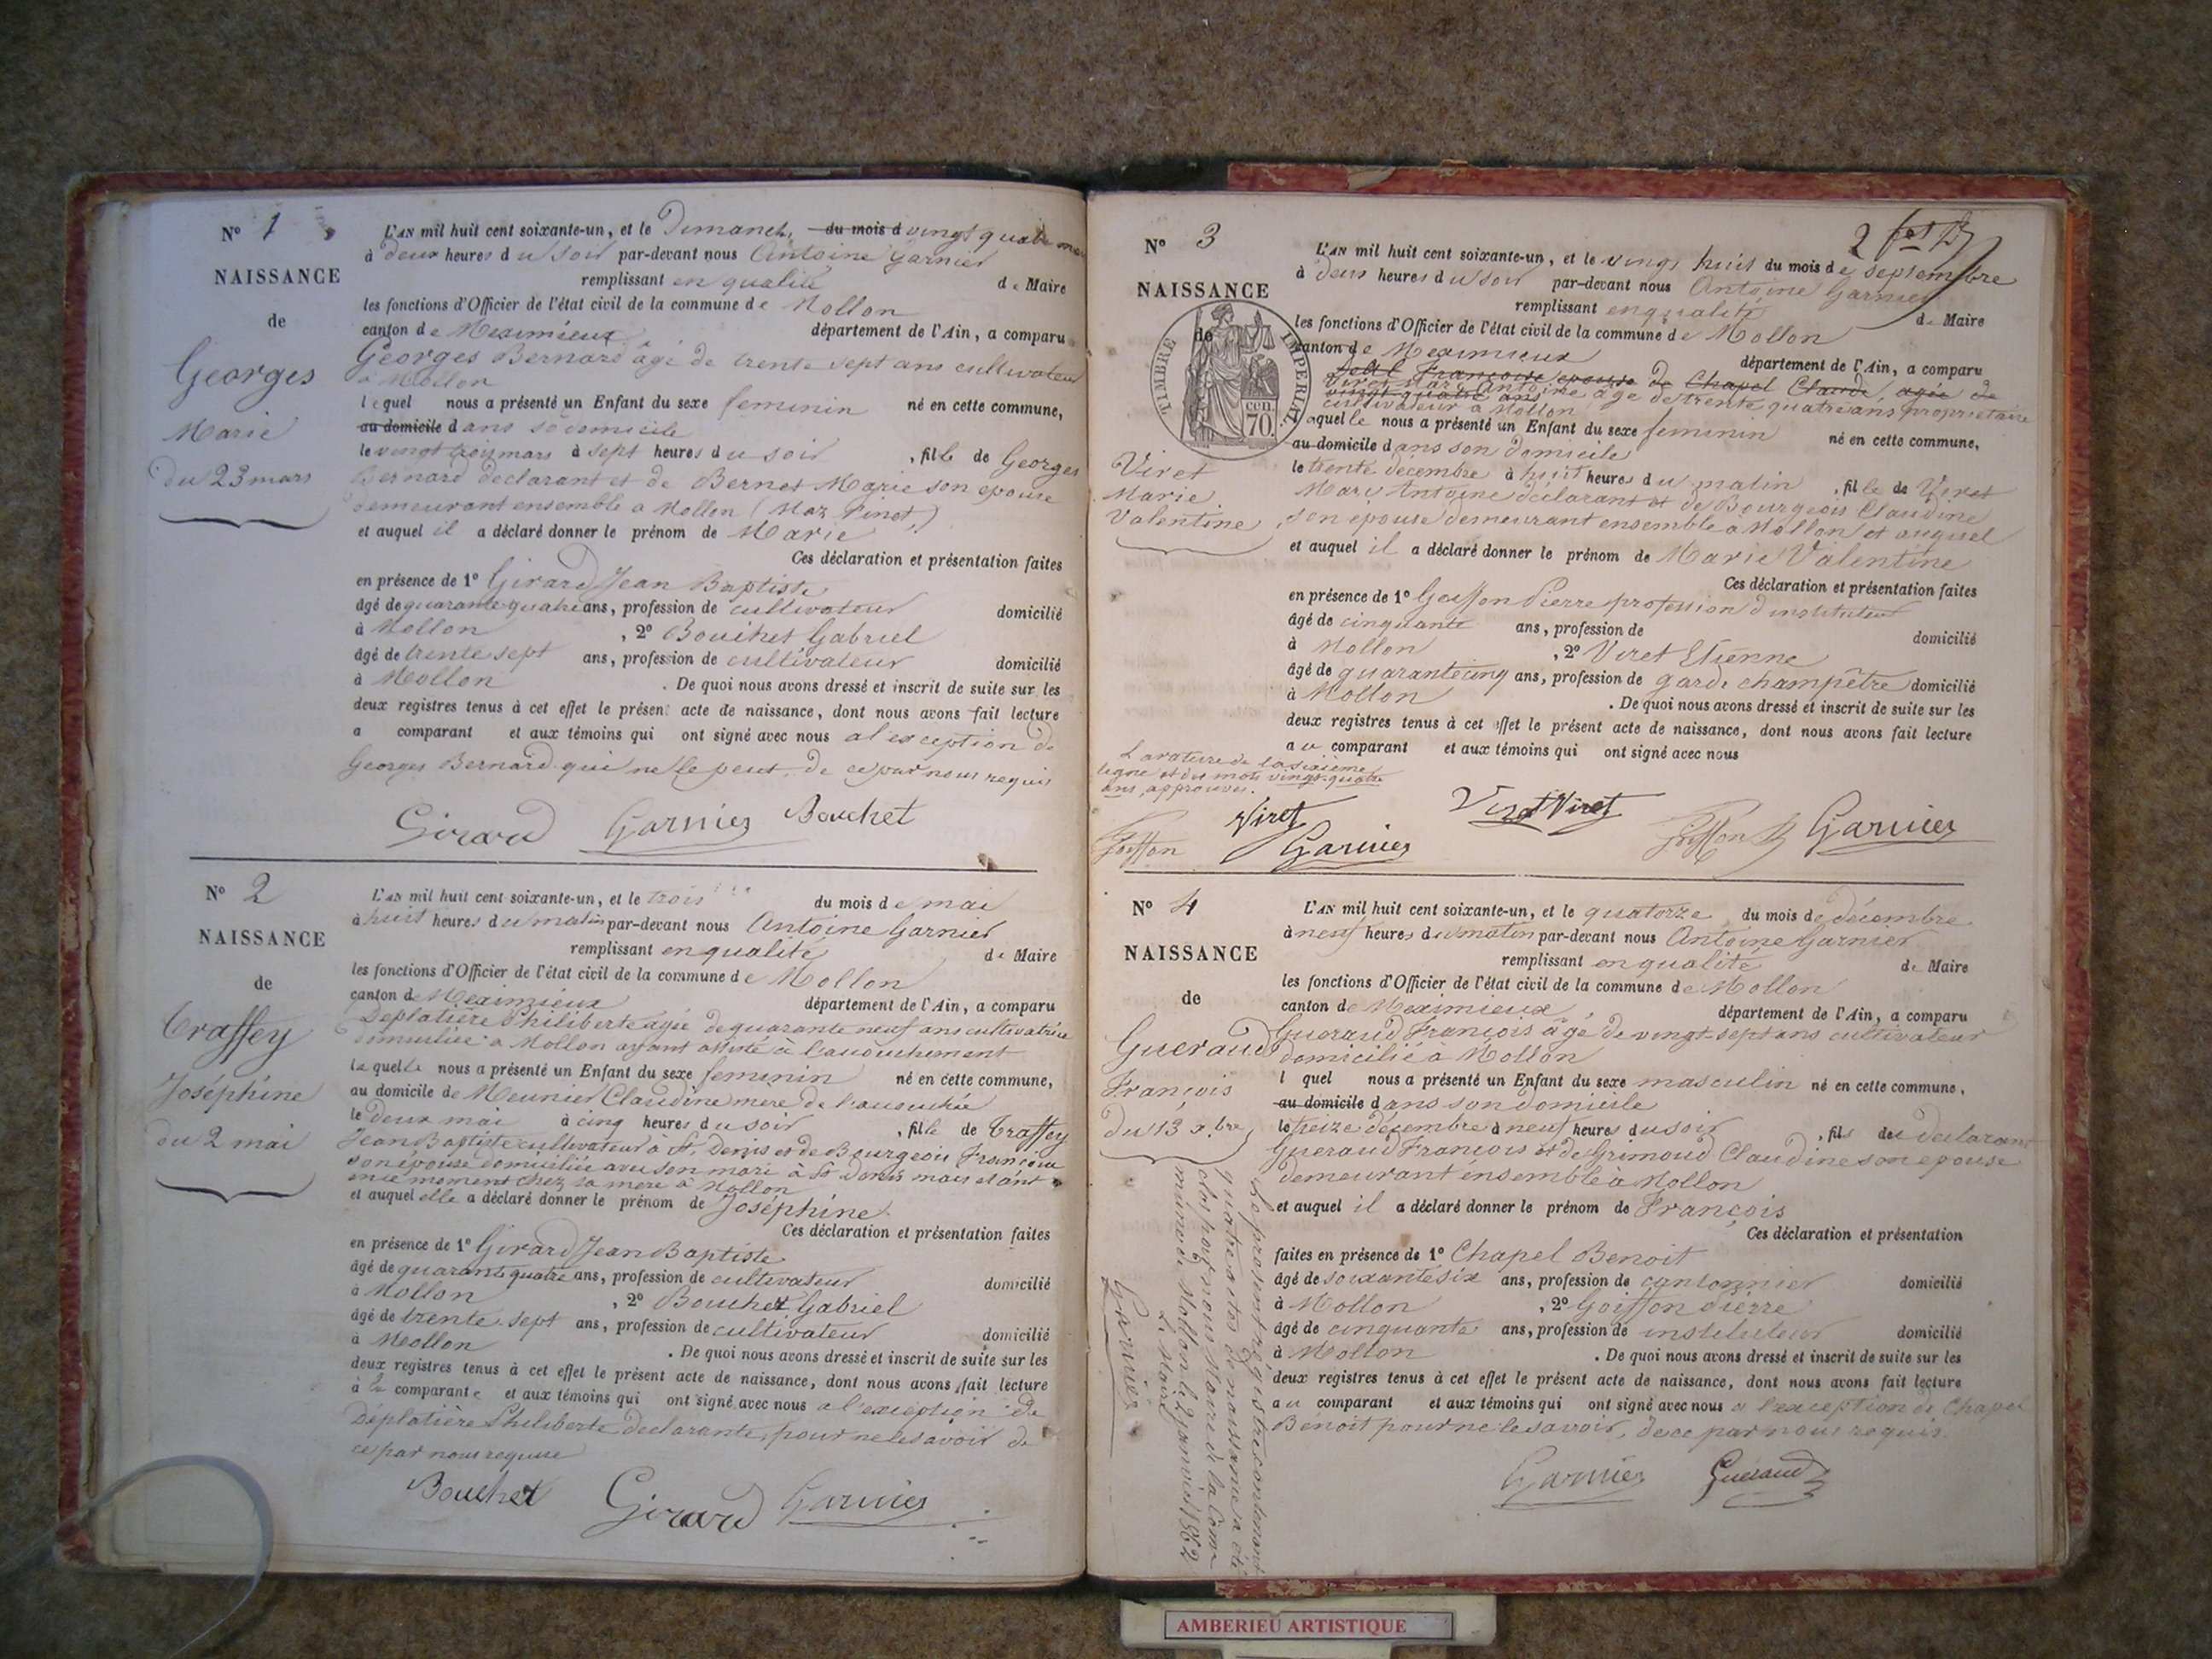 N° 1
NAISSANCE
de
Georges
Marie
du 23 mars
L'AN mil huit cent soixante-un, et le Dimanche du mois d vingt quatre mars
à deux heures du soir par-devant nous Antoine Garnier
remplissant en qualité de Maire
les fonctions d'Officier de l'état civil de la commune de Mollon
canton de Meximieux département de l'Ain, a comparu
Georges Bernard âgé de trente sept ans cultivateur
à Mollon
lequel nous a présenté un Enfant du sexe feminin né en cette commune,
au domicile dans domicile
le vingt trois mars à sept heures du soir, fille de Georges
Bernard declarant et de Bernet Marie son epouse
demeurant ensemble a Mollon
et auquel il a déclaré donner le prénom de Marie
Ces déclaration et présentation faites
en présence de 1° Girard Jean Baptiste
âgé de quarante quatre ans, profession de cultivateur domicilié
à Mollon, 2° Bouchet Gabriel
âgé de trente sept ans, profession de cultivateur domicilié
à Mollon. De quoi nous avons dressé et inscrit de suite sur les
deux registres tenus à cet effet le présent acte de naissance, dont nous avons fait lecture
a comparant et aux témoins qui ont signé avec nous a l'exception de
Georges Bernard qui ne le peut, de ce par nous requis
Girard Garnier Bouchet
N° 2
NAISSANCE
de
Traffey
Joséphine
du 2 mai
L'AN mil huit cent soixante-un, et le trois du mois de mai
à huit heures du matin par-devant nous Antoine Garnier
remplissant en qualité de Maire
les fonctions d'Officier de l'état civil de la commune de Mollon
canton de Meximieux département de l'Ain, a comparu
Deplatière Philiberte agée de quarante neuf ans cultivatrice
domiciliée a Mollon ayant assisté à l'accouchement
laquelle nous a présenté un Enfant du sexe feminin né en cette commune,
au domicile de Meunier Claudine mere de l'accouchée
le deux mai à cinq heures du soir, fille de Traffey
Jean Baptiste cultivateur à St Denis et de Bourgeois Françoise
son épouse domiciliée avec son mari à St Denis mais étant
en ce moment chez sa mere à Mollon
et auquel elle a déclaré donner le prénom de Joséphine
Ces déclaration et présentation faites
en présence de 1° Girard Jean Baptiste
âgé de quarante quatre ans, profession de cultivateur domicilié
à Mollon, 2° Bouchet Gabriel
âgé de trente sept ans, profession de cultivateur domicilié
à Mollon. De quoi nous avons dressé et inscrit de suite sur les
deux registres tenus à cet effet le présent acte de naissance, dont nous avons fait lecture
à la comparante et aux témoins qui ont signé avec nous a l'exception de
Déplatière Philiberte declarante, pour ne le savoir de
ce par nous requise
Bouchet Girard Garnier
2
N° 3
NAISSANCE
de
TIMBRE IMPERIAL
70 cen.
Viret
Marie
Valentine
L'AN mil huit cent soixante-un, et le vingt huit du mois de septembre
à deux heures du soir par-devant nous Antoine Garnier
remplissant en qualité de Maire
les fonctions d'Officier de l'état civil de la commune de Mollon
canton de Meximieux département de l'Ain, a comparu
Françoise épouse de Chapel Claude, agée de
vingt-quatre ans
Viret Marc Antoine âgé de trente quatre ans propriétaire
cultivateur à Mollon
laquelle nous a présenté un Enfant du sexe feminin né en cette commune,
au domicile dans son domicile
le trente décembre à huit heures du matin, fille de Viret
Marc Antoine déclarant et de Bourgeois Claudine
son epouse demeurant ensemble a Mollon et auquel
et auquel il a déclaré donner le prénom de Marie Valentine
Ces déclaration et présentation faites
en présence de 1° Goiffon Pierre profession d'instituteur
âgé de cinquante ans, profession de domicilié
à Mollon, 2° Viret Etienne
âgé de quarante cinq ans, profession de garde champêtre domicilié
à Mollon. De quoi nous avons dressé et inscrit de suite sur les
deux registres tenus à cet effet le présent acte de naissance, dont nous avons fait lecture
au comparant et aux témoins qui ont signé avec nous
La rature de la sixième
ligne et des mots vingt-quatre
ans, approuvés.
Goiffon Viret Garnier Viret Viret Goiffon Garnier
N° 4
NAISSANCE
de
Gueraud
François
Du 13 Xbre
L'AN mil huit cent soixante-un, et le quatorze du mois de décembre
à neuf heures du matin par-devant nous Antoine Garnier
remplissant en qualité de Maire
les fonctions d'Officier de l'état civil de la commune de Mollon
canton de Meximieux département de l'Ain, a comparu
Gueraud François âgé de vingt-sept ans cultivateur
domicilié à Mollon
l quel nous a présenté un Enfant du sexe masculin né en cette commune,
au domicile dans son domicile
le treize décembre à neuf heures du soir, fils du declarant
Gueraud François et de Grimoud Claudine son epouse
demeurant ensemble à Mollon
et auquel il a déclaré donner le prénom de François
Ces déclaration et présentation
faites en présence de 1° Chapel Benoit
âgé de soixante six ans, profession de cantonnier domicilié
à Mollon, 2° Goiffon Pierre
âgé de cinquante ans, profession de instituteur domicilié
à Mollon. De quoi nous avons dressé et inscrit de suite sur les
deux registres tenus à cet effet le présent acte de naissance, dont nous avons fait lecture
au comparant et aux témoins qui ont signé avec nous a l'exception de Chapel
Benoit pour ne le savoir, de ce par nous requis.
Garnier Gueraud
Le présent régistre contenant
quatre actes de naissance a été
clos par nous Maire de la Com-
mune de Mollon le janvier 1862
Le Maire
Garnier
AMBERIEU ARTISTIQUE